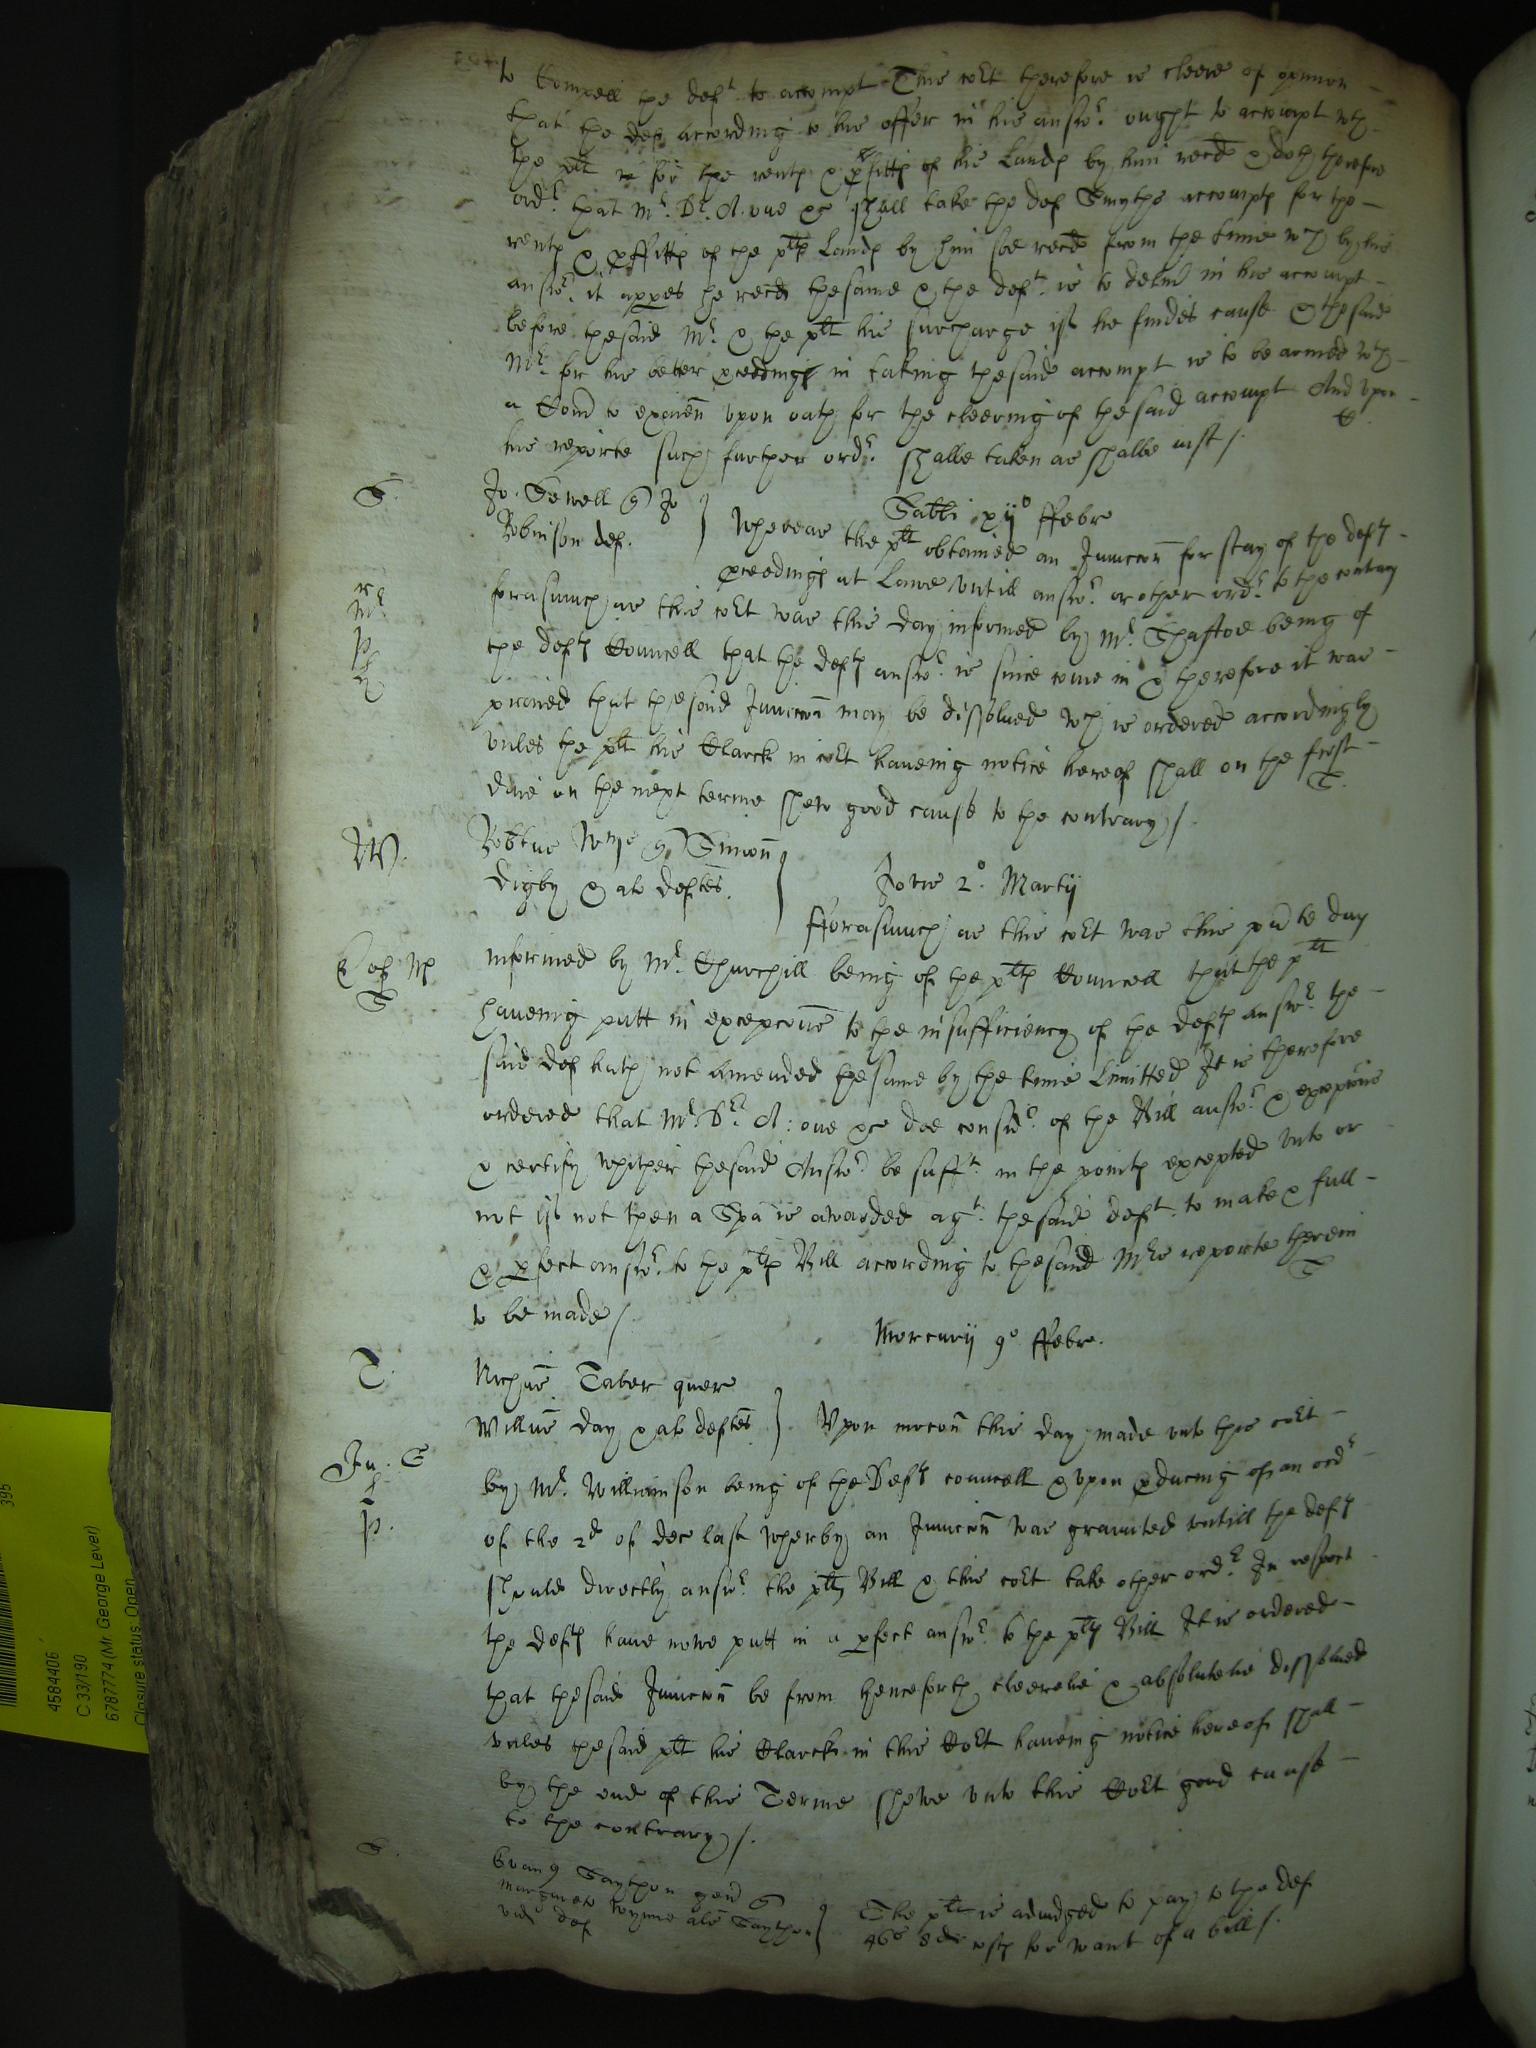 to Compell the deft to accompt This cort therefore is cleere of opinion
that the def according to his offer in his answr ought to accompt wth
the plt for the rents & pfitts of his Lands by him recd & doth therefore
ordr that Mr Dr A. one &c shall take the def Smyths accompts for the
rents & pffitts of the plts Lands by him soe recd from the time wch by his
answr it appes he recd thesame & the deft is to delivr in his accompt
before thesaid Mr & the plt his surcharge if he findes cause & thesaid
Mr for his better pceedings in taking thesaid accompt is to be armed wth
a Comn to examen vpon oath for the cleering of the said accompt And vpon
his reporte such further ordr shalbe taken as shalbe iust /.
S. Jo. Sewell q Jo
Robinson def.
Sabbi xijo ffebr
Whereas the plt obtained an Iniuccon for stay of the defts
pceedings at Lawe vntill answr or other ordr to the contrary
forasmuch as this cort was this day informed by Mr Shaftoe being of
the defts Councell that the defts answr is since come in & therefore it was
praied that thesaid Iniuccon may be dissolued wch is ordered accordingly
vnles the plt his Clarck in cort haueing notice hereof shall on the first
daie on the next terme shew good cause to the contrary /.
W. Robtus q Simon
Digby & als deftes.
Jovis 2o. Martij
fforasmuch as this cort was this pnte day
informed by Mr Churchill being of the plts Councell that the plt
haueing putt in excepcons to the insufficiency of the defts answr the
said def hath not amended thesame by the time Limitted It is therefore
ordered that Mr Dr A: one &c doe considr of the Bill answr & excepcons
& certify whither thesaid Answr be sufft in the points excepted vnto or
not if not then a Spa is awarded agt thesaid deft to make a full
& pfect answr to the plts Bill according to thesaid Mrs reporte therein
to be made /.
Mercurij 9o ffebr.
T. Nichus Taber quer
Willus Day & als deftes
Vpon mocon this day made vnto this cort
by Mr Williamson being of the Defts councell & vpon pducing of an ordr
of the 2d of Dec last wherby an Iniuccon was graunted vntill the defts
should directly answr the plts Bill & this cort take other ordr In respect
the defts haue nowe putt in a pfect answr to the plts Bill It is ordered
that thesaid Iniuccon be from henceforth cleerelie & absolutelie dissolued
vnles thesaid plt his Clarck in this Cort haueing notice hereof shall
by the end of this Terme shewe vnto this Cort good cause
to the contrary /.
S. Evan Saython q
Margareta Wynne als Saython
vid def
The plt is adiudged to pay to the def
46s 8d costs for want of a bill /.
395
4584406
C 33/190
6787774 (Mr George Lever)
Closure status: Open